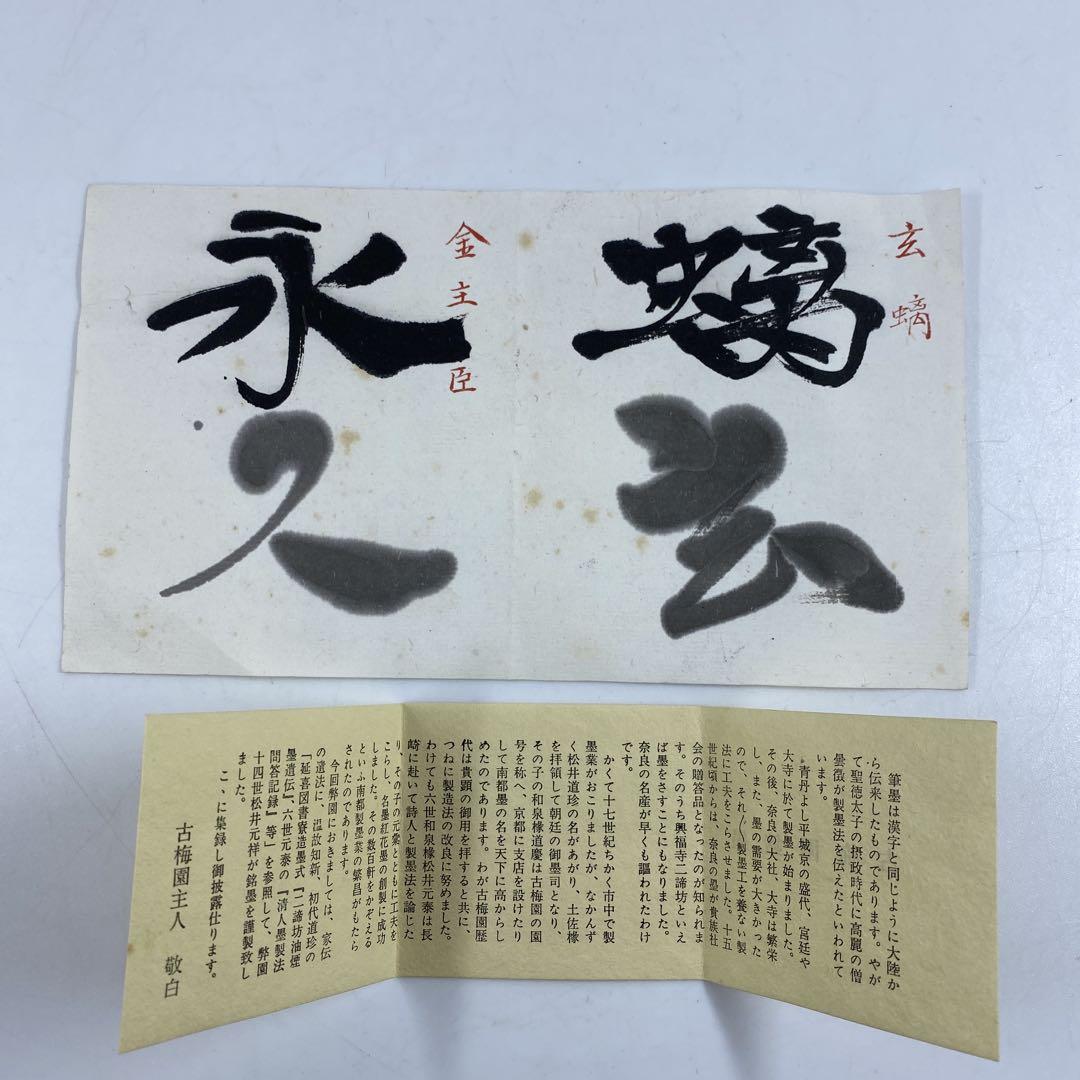 玄螭
螭玄
金主臣
永久
筆墨は漢字と同じように大陸か
ら伝来したものであります。やが
て聖徳太子の摂政時代に高麗の僧
曇徴が製墨法を伝えたといわれて
います。
青丹よし平城京の盛代、宮廷や
大寺に於て製墨が始まりました。
その後、奈良の大社、大寺は繁栄
し、また、墨の需要が大きかった
ので、それ〴〵製墨工を養ない製
法に工夫をこらさせました。十五
世紀頃からは、奈良の墨が貴族社
会の贈答品となったのが知られま
す。そのうち興福寺二諦坊といえ
ば墨をさすことにもなりました。
奈良の名産が早くも謳われたわけ
です。
かくて十七世紀ちかく市中で製
墨業がおこりましたが、なかんず
く松井道珍の名があがり、土佐椽
を拝領して朝廷の御墨司となり、
その子の和泉椽道慶は古梅園の園
号を称へ、京都に支店を設けたり
して南都墨の名を天下に高からし
めたのであります。わが古梅園歴
代は貴顕の御用を拝すると共に、
つねに製造法の改良に努めました。
わけても六世和泉椽松井元泰は長
崎に赴いて詩人と製墨法を論じた
り、その子の元彙とともに工夫を
こらし、名墨紅花墨の創製に成功
しました。その数百軒をかぞえる
といふ南都製墨業の繁昌がもたら
されたのであります。
今回弊園におきましては、家伝
の遺法に、温故知新、初代道珍の
『延喜図書寮造墨式』『二諦坊油煙
墨遺伝』、六世元泰の『清人墨製法
問答記録』等」を参照して、弊園
十四世松井元祥が銘墨を謹製致し
ました。
こゝに集録し御披露仕ります。
古梅園主人 敬白